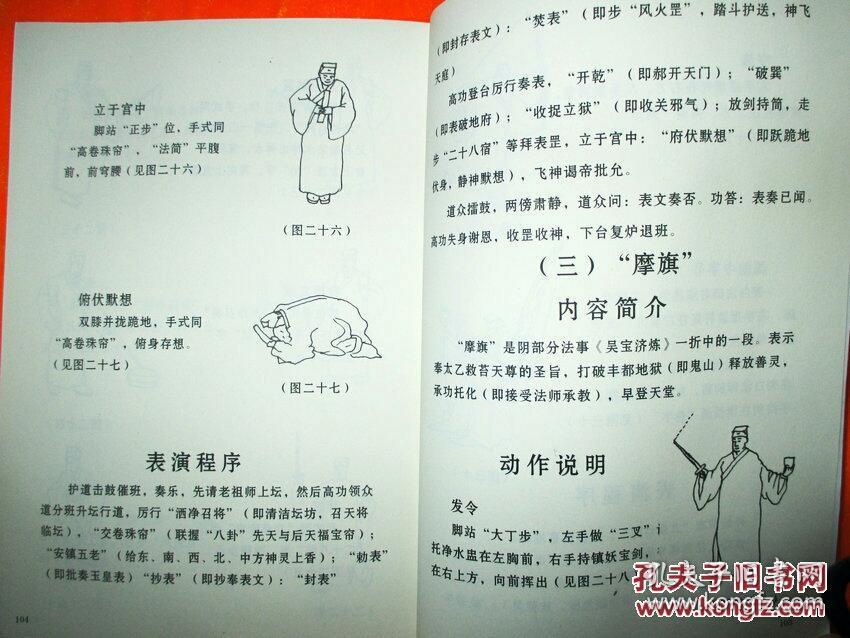 立于宫中
脚站“正步”位，手式同
“高卷珠帘”，“法简”平腹
前，前弯腰（见图二十六）
（图二十六）
俯伏默想
双膝并拢跪地，手式同
“高卷珠帘”，俯身存想。
（见图二十七）
（图二十七）
表演程序
护道击鼓催班，奏乐，先请老祖师上坛，然后高功领众
道分班升坛行道，厉行“洒净召将”（即清洁坛坊，召天将
临坛），“交卷珠帘”（联握“八卦”先天与后天福宝帘）；
“安镇五老”（给东、南、西、北、中方神灵上香）；“勅表”
（即批奏玉皇表）“抄表”（即抄奉表文）：“封表”
104
（即封存表文）：“焚表”（即步“风火罡”，踏斗护送，神飞
天庭）
高功登台厉行奏表，“开乾”（即郝开天门）；“破巽”
（即表破地府）；“收捉立狱”（即收关邪气）；放剑持简，走
步“二十八宿”等拜表罡，立于宫中：“府伏默想”（即跃跪地
伏身，静神默想），飞神谒帝批允。
道众擂鼓，两傍肃静，道众问：表文奏否。功答：表奏已闻。
高功失身谢恩，收罡收神，下台复炉退班。
（三）“摩旗”
内容简介
“摩旗”是阴部分法事《吴宝济炼》一折中的一段。表示
奉太乙救苔天尊的圣旨，打破丰都地狱（即鬼山）释放善灵，
承功托化（即接受法师承教），早登天堂。
动作说明
发令
脚站“大丁步”，左手做“三叉”
托净水盅在左胸前，右手持镇妖宝剑，
在右上方，向前挥出（见图二十八
孔夫子旧书网
www.kongfz.com